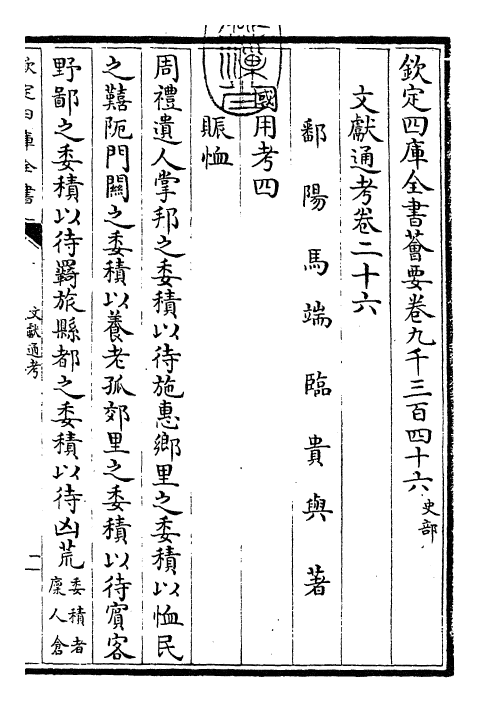 欽定四庫全書薈要卷九千三百四十六史部
文獻通考卷二十六
鄱陽馬端臨貴與著
國用考四
賑恤
周禮遺人掌邦之委積以待施惠鄉里之委積以恤民
之囏阨門關之委積以養老孤郊里之委積以待賓客
野鄙之委積以待羇旅縣都之委積以待凶荒委積者
廩人倉
欽定四庫全書
文獻通考